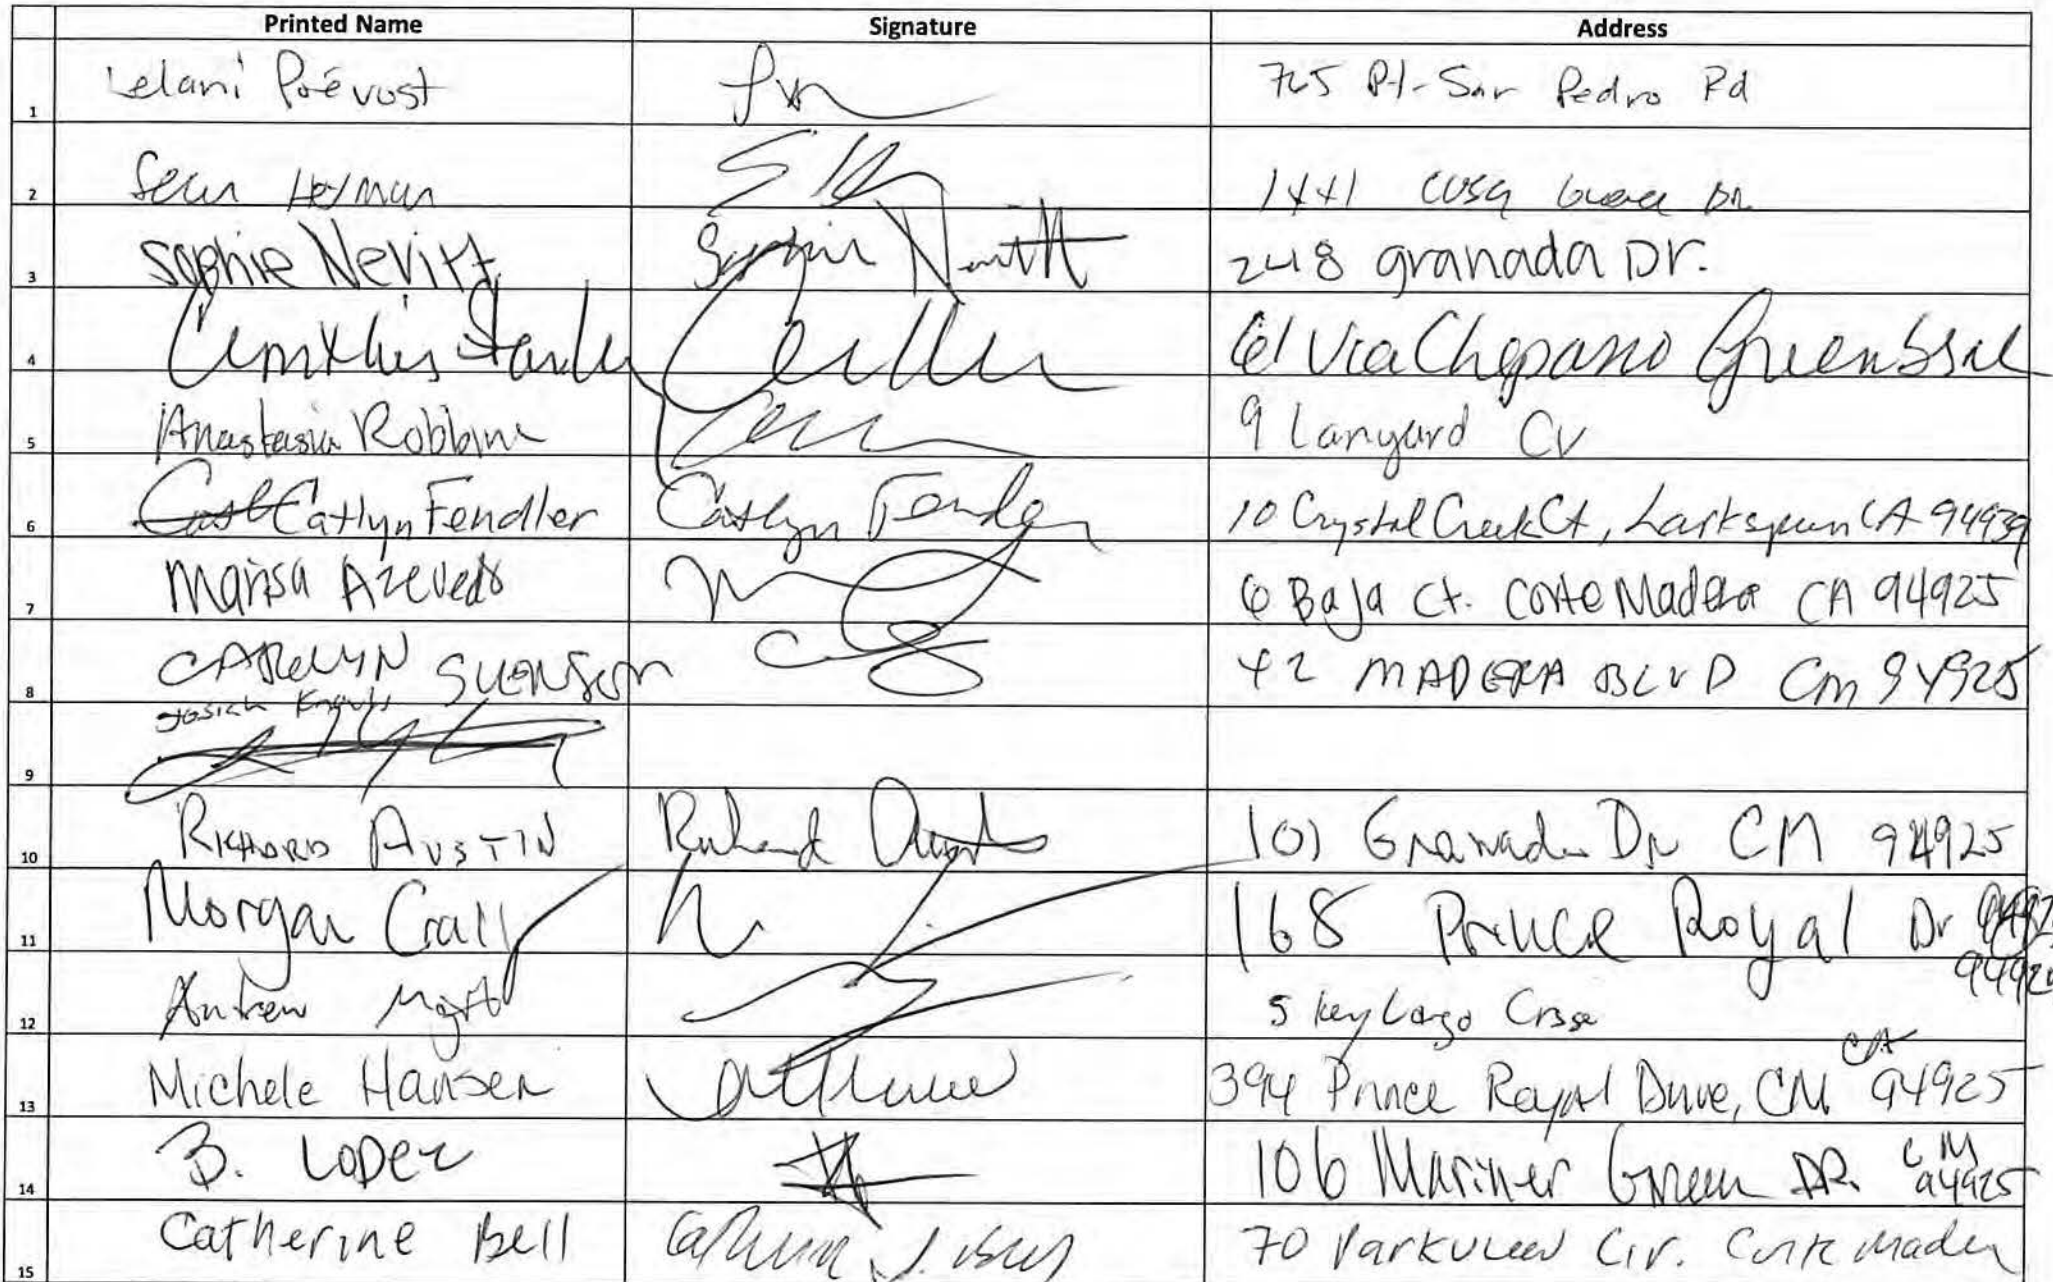 Printed Name Signature Address
1 Lelani Prévost 725 Pt. San Pedro Rd
2 Sean Heyman 1441 Casa Buena Dr
3 Sophie Nevitt Sophie Nevitt 248 granada Dr.
4 61 Via Cheparro Greenbrae
5 Anastasia Robbins 9 Lanyard CV
6 Catlyn Fendler Catlyn Fendler 10 Crystal Creek Ct, Larkspur CA 94939
7 Marisa Azevedo 6 Baja Ct. Corte Madera CA 94925
8 CAROLYN SVENSON 42 MADERA BLVD CM 94925
9 Josiah
10 RICHARD AUSTIN Richard Austin 101 Granada Dr CM 94925
11 Morgan Crall 168 Prince Royal Dr 94925
12 Andrew 5 Key Largo 94925
13 Michele Hansen 394 Prince Royal Drive, CM CA 94925
14 B. Lopez 106 Mariner Green DR. CM 94925
15 Catherine Bell Catherine J. Bell 70 Parkview Cir. Corte Madera